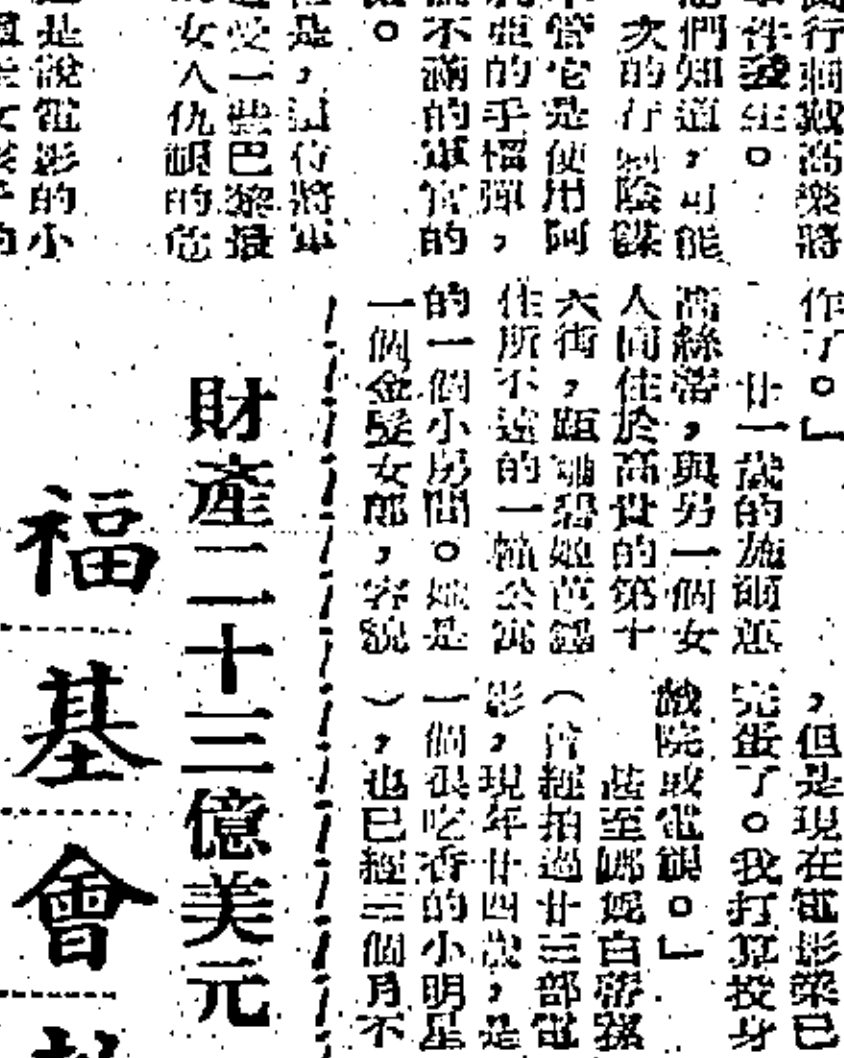 行刺戴高樂將
生。
們知道，可能
次的行刺陰謀
管它是使用阿
的手榴彈，
不滿的軍官的
。
是，這位將軍
受一些巴黎最
女人仇視的危
是說電影的小
作了。」
廿一歲的施爾惠
高絲洛，與另一個女
人同住於高貴的第十
六街，距
住所不遠的一幢公寓
的一個小房間。她是
一個金髮女郎，容貌
，但是現在電影業已
完蛋了。我打算投身
戲院或電視。」
甚至
（曾經拍過廿三部電
影，現年廿四歲，是
一個很吃香的小明星
），也已經三個月不
財產二十三億美元
福基會